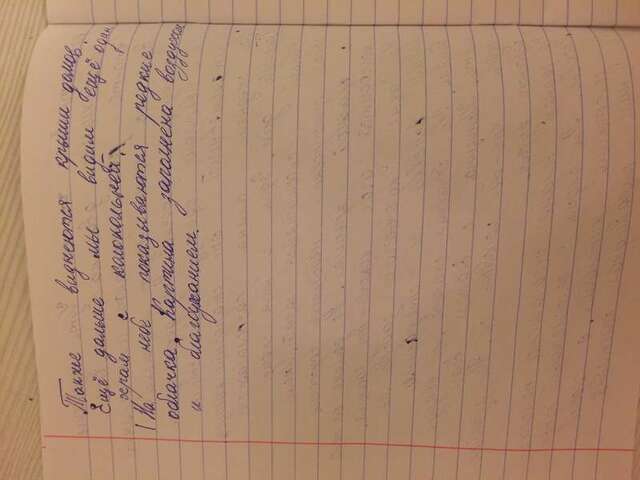 Также виднеются крыши домов.
Ещё дальше мы видим ещё один
храм с колокольней.
На небе показываются редкие
облачка. Картина заполнена воздухом
и благоуханием.